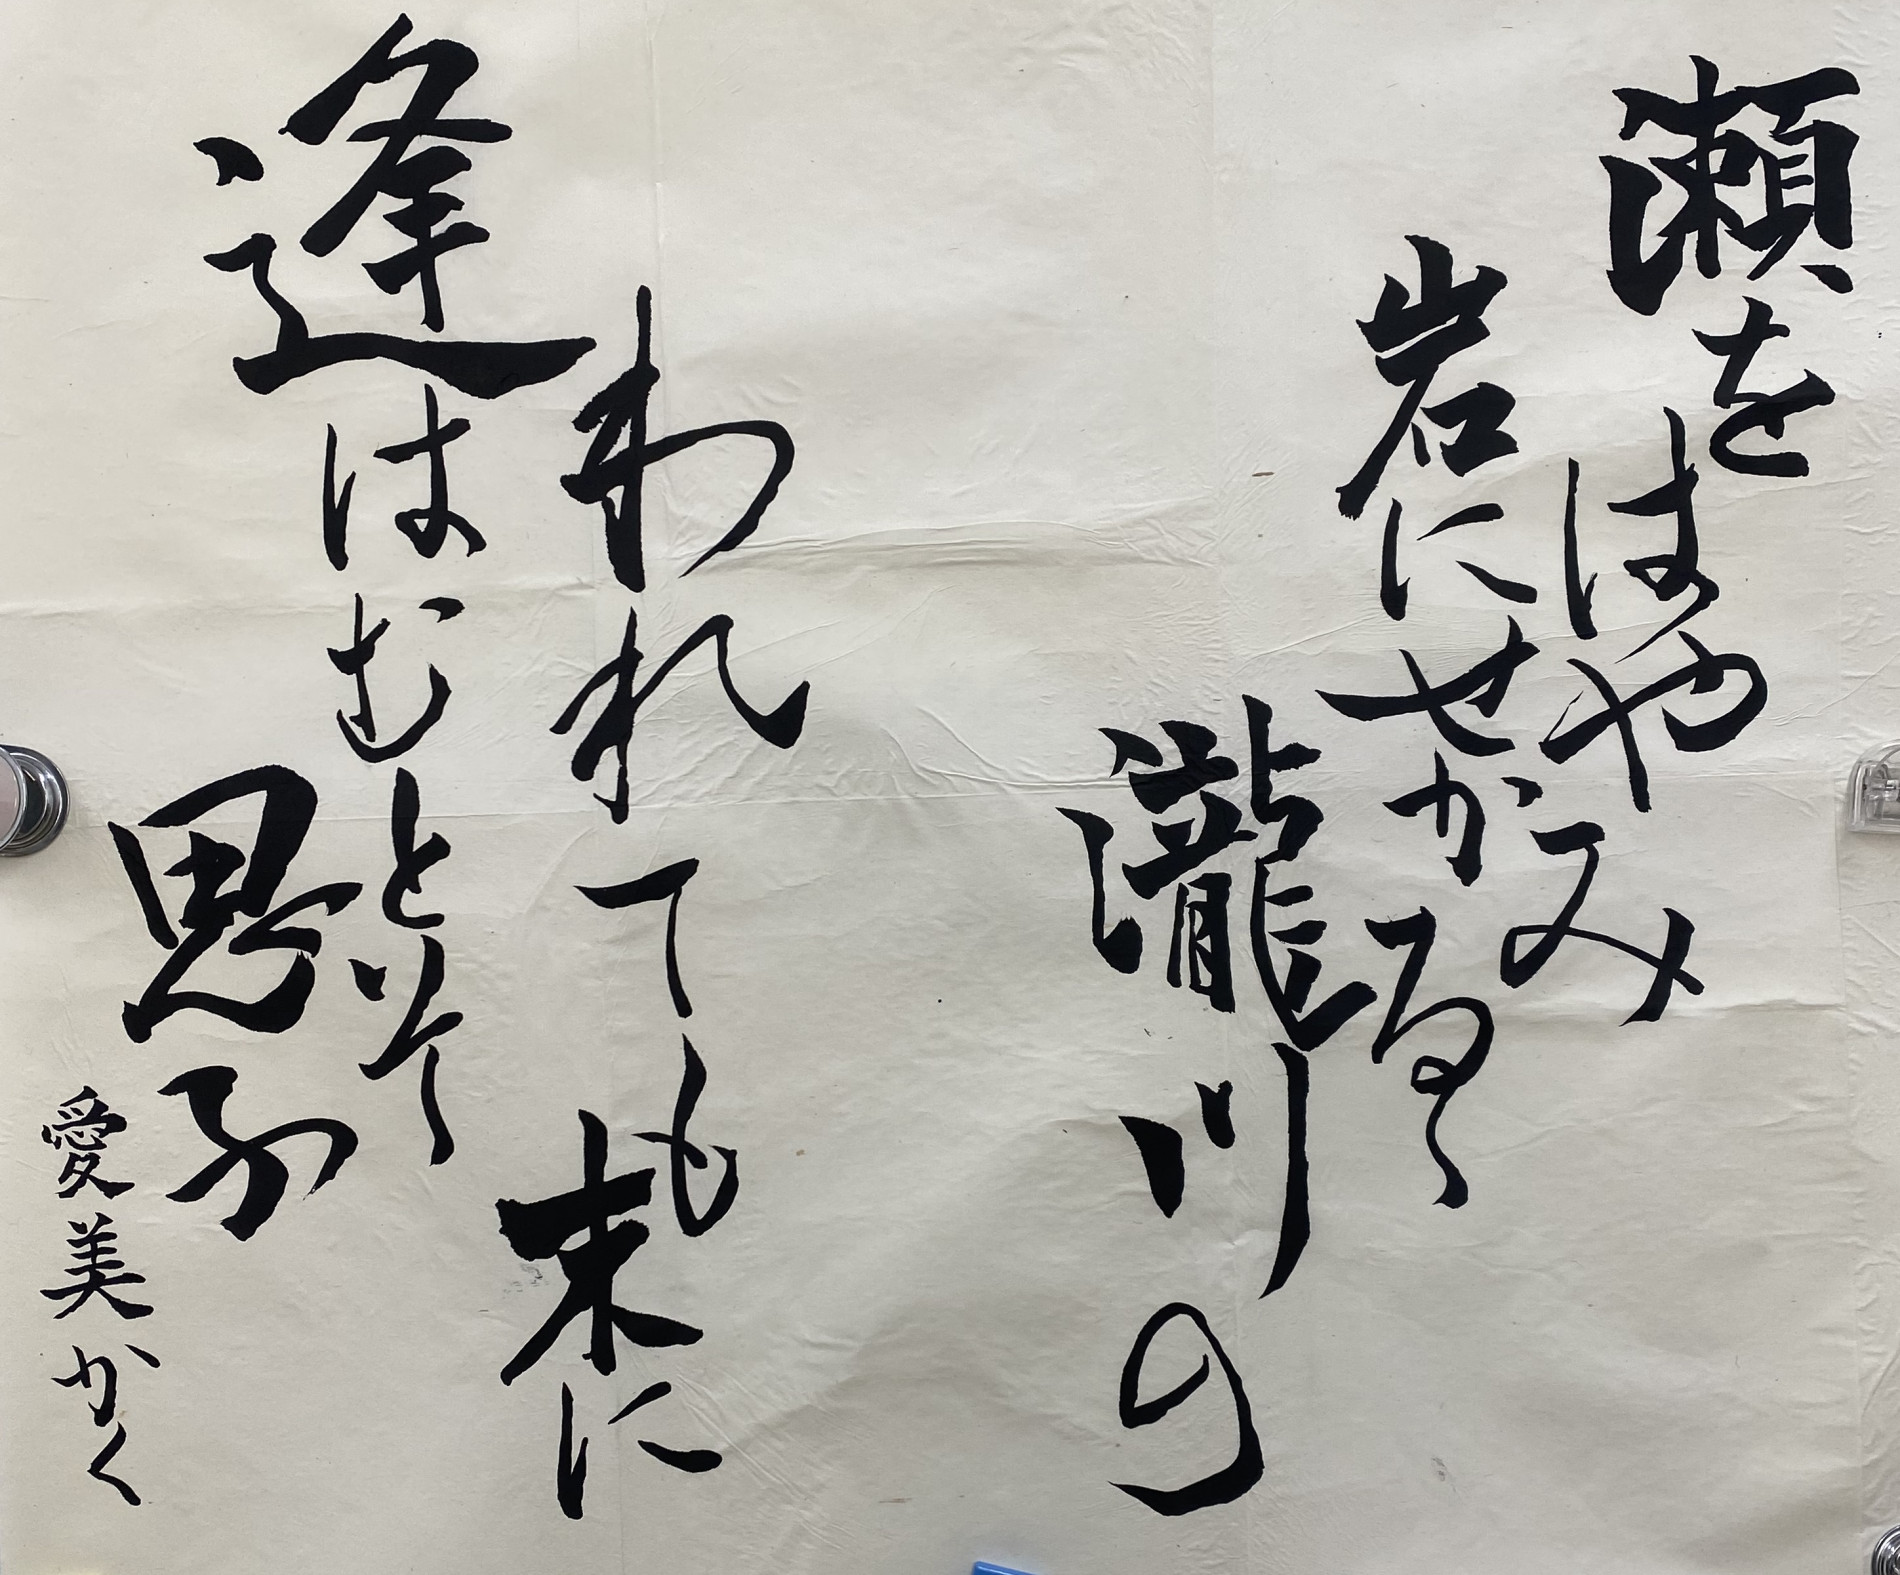 瀬をはやみ
岩にせかるゝ
瀧川の
われても末に
逢はむとそ
思ふ
愛美かく